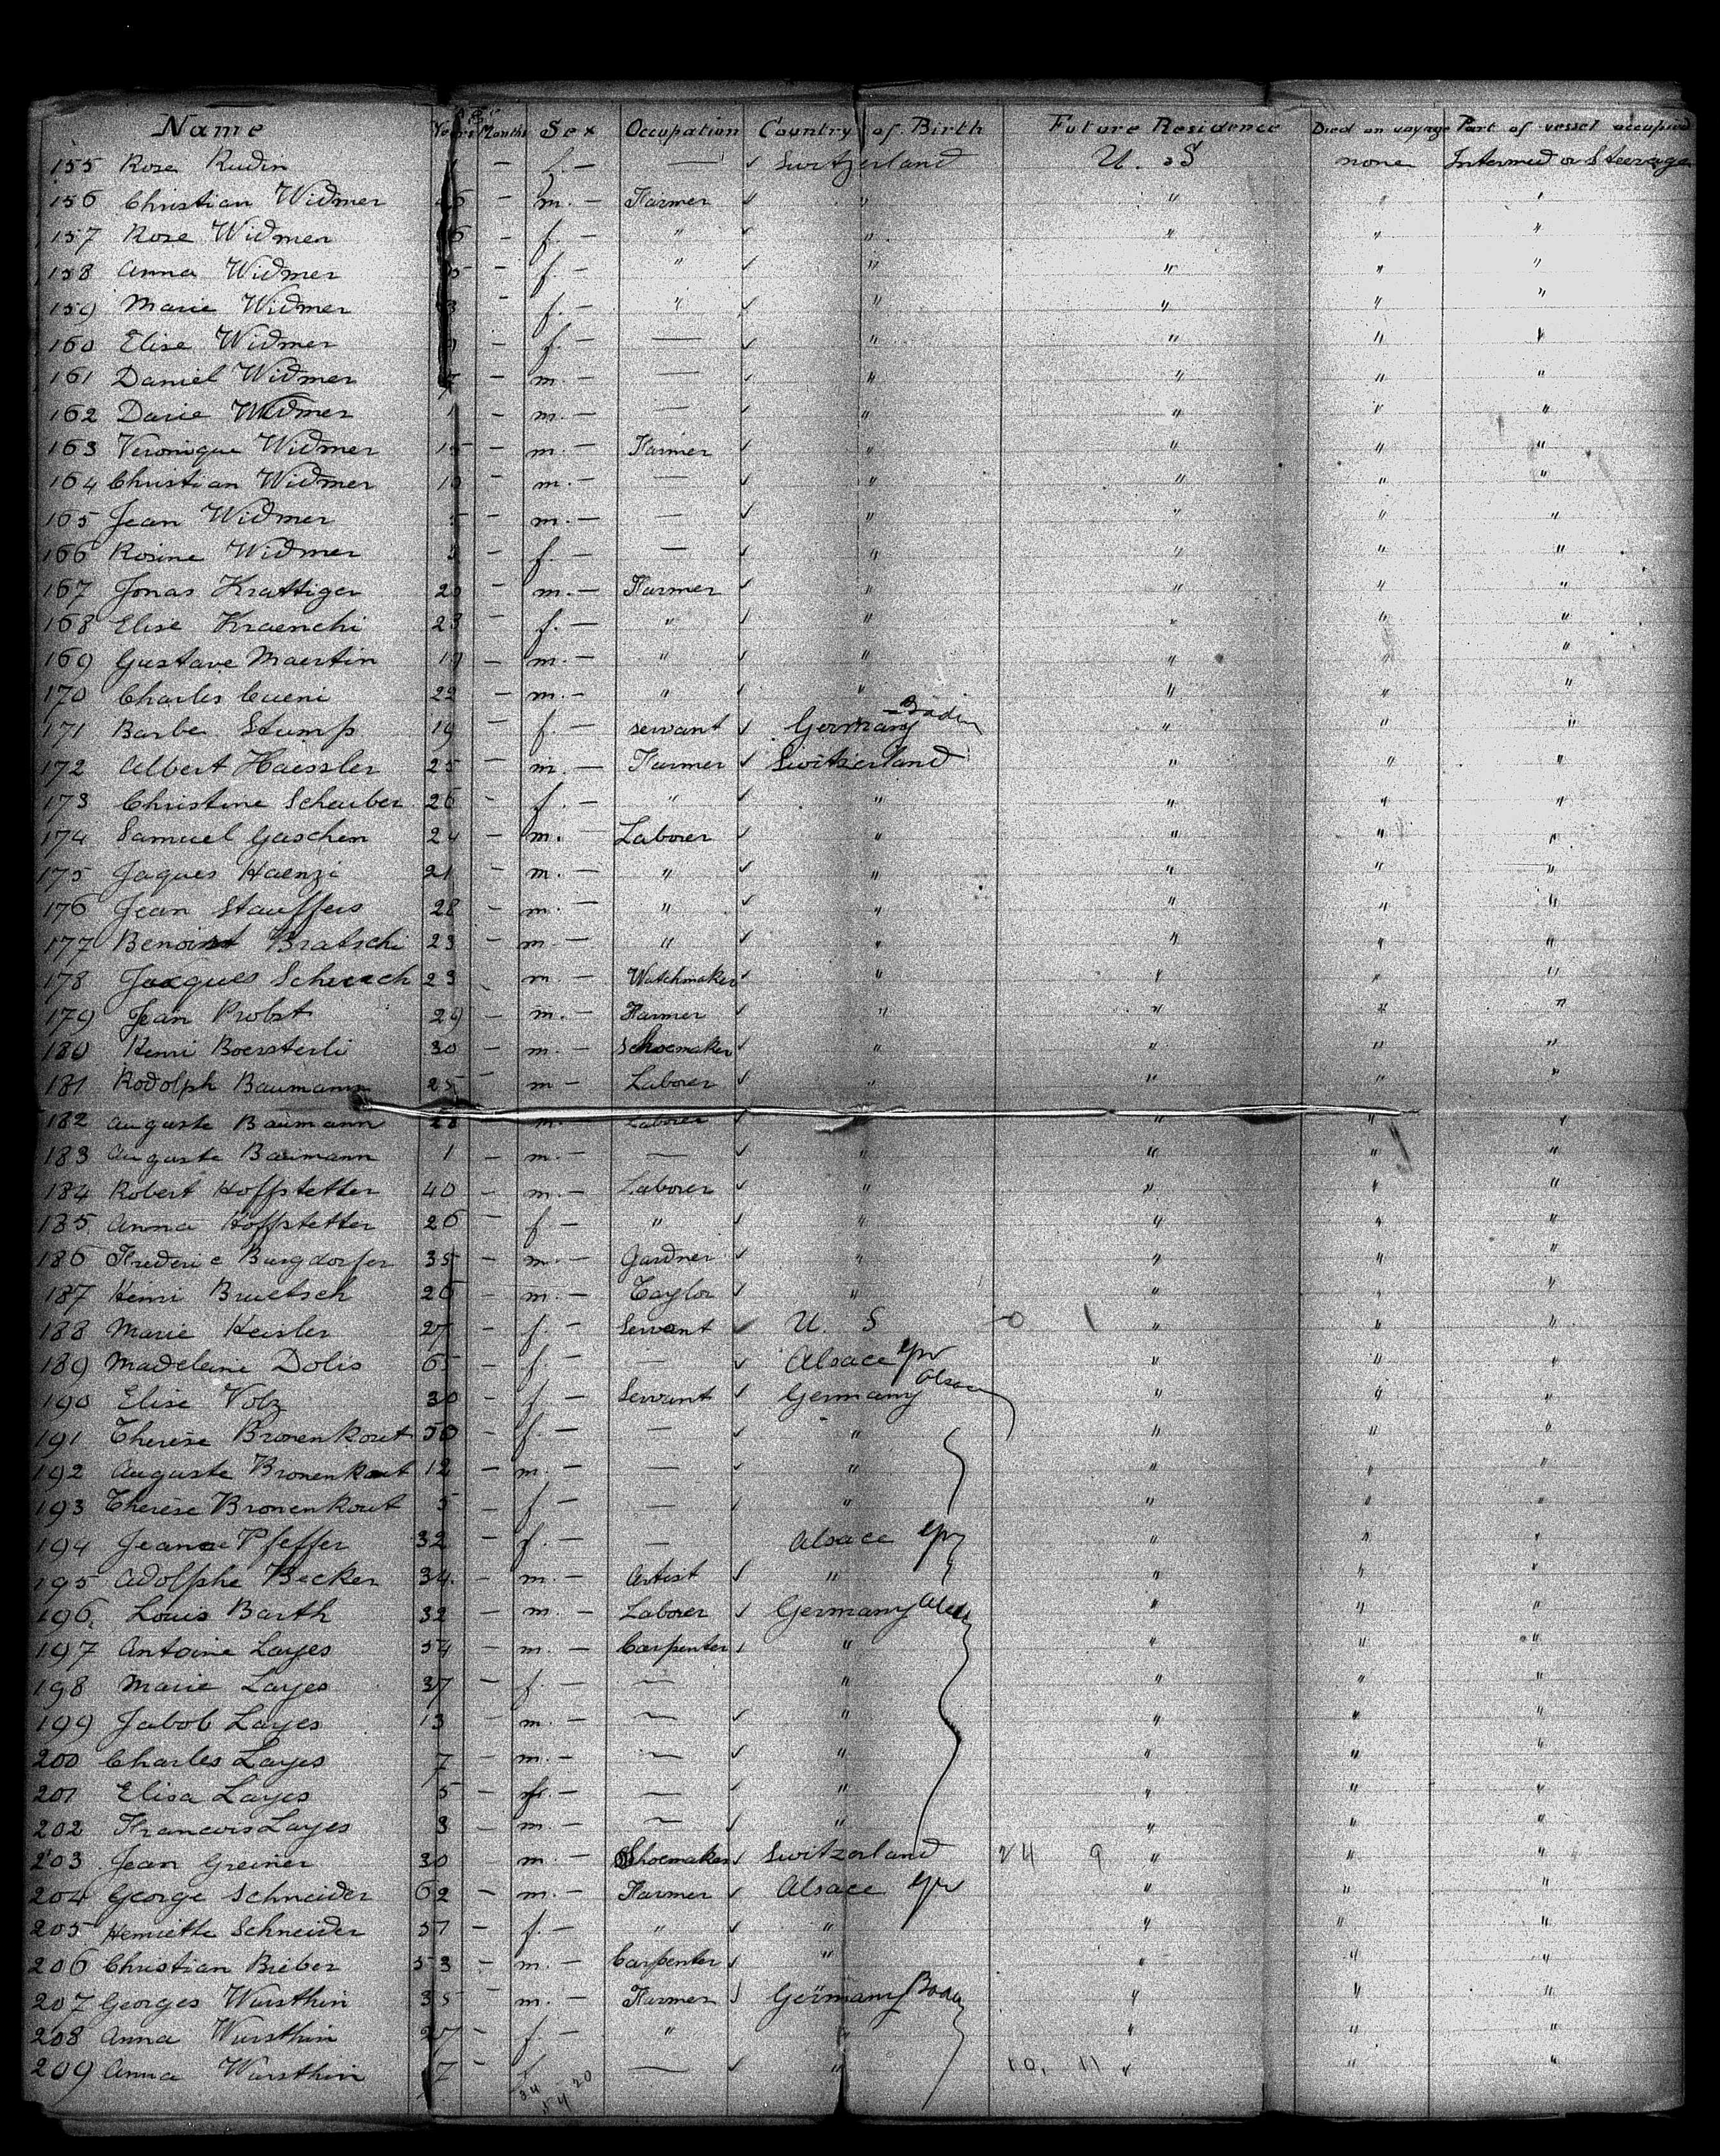 Name Years Months Sex Occupation Country of Birth Future Residence Died on voyage Part of vessel occupied
155 Rosa Rudin — f. — — ✓ Switzerland U. S none Intermed or Steerage
156 Christian Widmer — m. — Farmer ✓ " " " "
157 Rose Widmer — f. — " ✓ " " " "
158 Anna Widmer — f. — " ✓ " " " "
159 Marie Widmer — f. — " ✓ " " " "
160 Elise Widmer — f. — — ✓ " " " "
161 Daniel Widmer — m. — — ✓ " " " "
162 Darie Widmer 1 — m. — — ✓ " " " "
163 Veronique Widmer — m. — Farmer ✓ " " " "
164 Christian Widmer — m. — — ✓ " " " "
165 Jean Widmer — m. — — ✓ " " " "
166 Rosine Widmer — f. — — ✓ " " " "
167 Jonas Krattiger — m. — Farmer ✓ " " " "
168 Elise Kraenchi 23 — f. — " ✓ " " " "
169 Gustave Maertin 19 — m. — " ✓ " " " "
170 Charles Cueni 22 — m. — " ✓ " " " "
171 Barbe Stump 19 — f. — servant ✓ Germany Baden " " "
172 Albert Haessler 25 — m. — Farmer ✓ Switzerland " " "
173 Christine Scheuber 26 — f. — " ✓ " " " "
174 Samuel Gaschen 24 — m. Laborer ✓ " " " "
175 Jaques Haenzi 21 — m. — " ✓ " " " "
176 Jean Stauffers 28 — m. — " ✓ " " " "
177 Benoist Bratschi 23 — m. — " ✓ " " " "
178 Jacques Scheuch 23 m. — Watchmaker ✓ " " " "
179 Jean Probst 29 — m. — Farmer ✓ " " " "
180 Henri Boersterli 30 — m. — Schoemaker ✓ " " " "
181 Rodolph Baumann 25 — m — Laborer ✓ " " " "
182 Auguste Baumann 28 m. — Laborer ✓ " " "
183 Auguste Baumann 1 — m. — — ✓ " " " "
184 Robert Hoffstetter 40 — m. — Laborer ✓ " " " "
185 Anna Hoffstetter 26 — f. — " ✓ " " " "
186 Frederic Burgdorfer 35 — m. — Gardner ✓ " " " "
187 Henri Bruetsch 26 — m. — Taylor ✓ " " " "
188 Marie Heisler 27 — f. — Servant ✓ U. S " " "
189 Madeleine Dolis 65 — f — — ✓ Alsace " " "
190 Elise Volz 30 — f. — Servant ✓ Germany " " "
191 Therese Bronenkout 50 — f. — — ✓ " " " "
192 Auguste Bronenkout 12 — m. — — ✓ " " " "
193 Therese Bronenkout 5 — f — — ✓ " " " "
194 Jeanne Pfeffer 32 — f. — — Alsace " " "
195 Adolphe Becker 34 — m. — Artist ✓ " " " "
196 Louis Barth 32 — m. — Laborer ✓ Germany " " "
197 Antoine Layes 54 — m. — Carpenter ✓ " " " "
198 Marie Layes 37 — f. — — " " " "
199 Jabob Layes 13 — m. — — ✓ " " " "
200 Charles Layes 7 — m. — — ✓ " " " "
201 Elisa Layes 5 — f. — — ✓ " " " "
202 Francois Layes 3 — m. — — ✓ " " " "
203 Jean Greiner 30 — m. — Shoemaker ✓ Switzerland 24 9 " " "
204 George Schneider 62 — m. — Farmer ✓ Alsace " " "
205 Henriette Schneider 57 — f. — " ✓ " " " "
206 Christian Bieber 53 — m. — Carpenter ✓ " " " "
207 Georges Wursthin 35 m. — Farmer ✓ Germany Baden " " "
208 Anna Wursthin 27 — f. — " " " " "
209 Anna Wursthin 7 — f. — — ✓ " 10, 11 ✓ " "
34 54 20